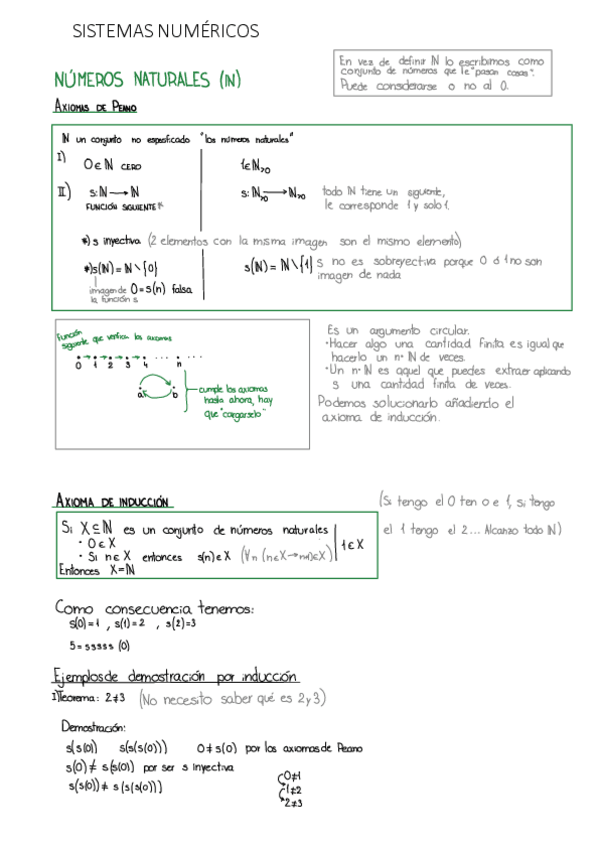 SISTEMAS NUMÉRICOS
En vez de definir ℕ lo escribimos como
conjunto de números que le "pasan cosas".
Puede considerarse o no al 0.
NÚMEROS NATURALES (ℕ)
AXIOMAS DE PEANO
ℕ un conjunto no especificado "los números naturales"
I) 0∈ℕ CERO 1∈ℕ>0
II) s:ℕ→ℕ s:ℕ>0→ℕ>0 todo ℕ tiene un siguiente,
FUNCIÓN SIGUIENTE le corresponde 1 y solo 1.
*) s inyectiva (2 elementos con la misma imagen son el mismo elemento)
*) s(ℕ)=ℕ\{0} s(ℕ)=ℕ\{1} s no es sobreyectiva porque 0 ó 1 no son
imagen de nada
imagen de 0=s(n) falsa
la función s
Función
siguiente que verifica los axiomas
0 1 2 3 4 ... n ...
a b
cumple los axiomas
hasta ahora, hay
que "cargárselo"
Es un argumento circular.
·Hacer algo una cantidad finita es igual que
hacerlo un nº ℕ de veces.
·Un nº ℕ es aquel que puedes extraer aplicando
s una cantidad finita de veces.
Podemos solucionarlo añadiendo el
axioma de inducción.
AXIOMA DE INDUCCIÓN
(Si tengo el 0 tengo el 1, si tengo
el 1 tengo el 2... Alcanzo todo ℕ)
Si X⊆ℕ es un conjunto de números naturales
· 0∈X 1∈X
· Si n∈X entonces s(n)∈X (∀n (n∈X→n+1∈X)
Entonces X=ℕ
Como consecuencia tenemos:
s(0)=1 , s(1)=2 , s(2)=3
5=sssss(0)
Ejemplos de demostración por inducción
1)Teorema: 2≠3 (No necesito saber qué es 2 y 3)
Demostración:
s(s(0)) s(s(s(0))) 0≠s(0) por los axiomas de Peano
s(0)≠s(s(0)) por ser s inyectiva
s(s(0))≠s(s(s(0)))
0≠1
1≠2
2≠3